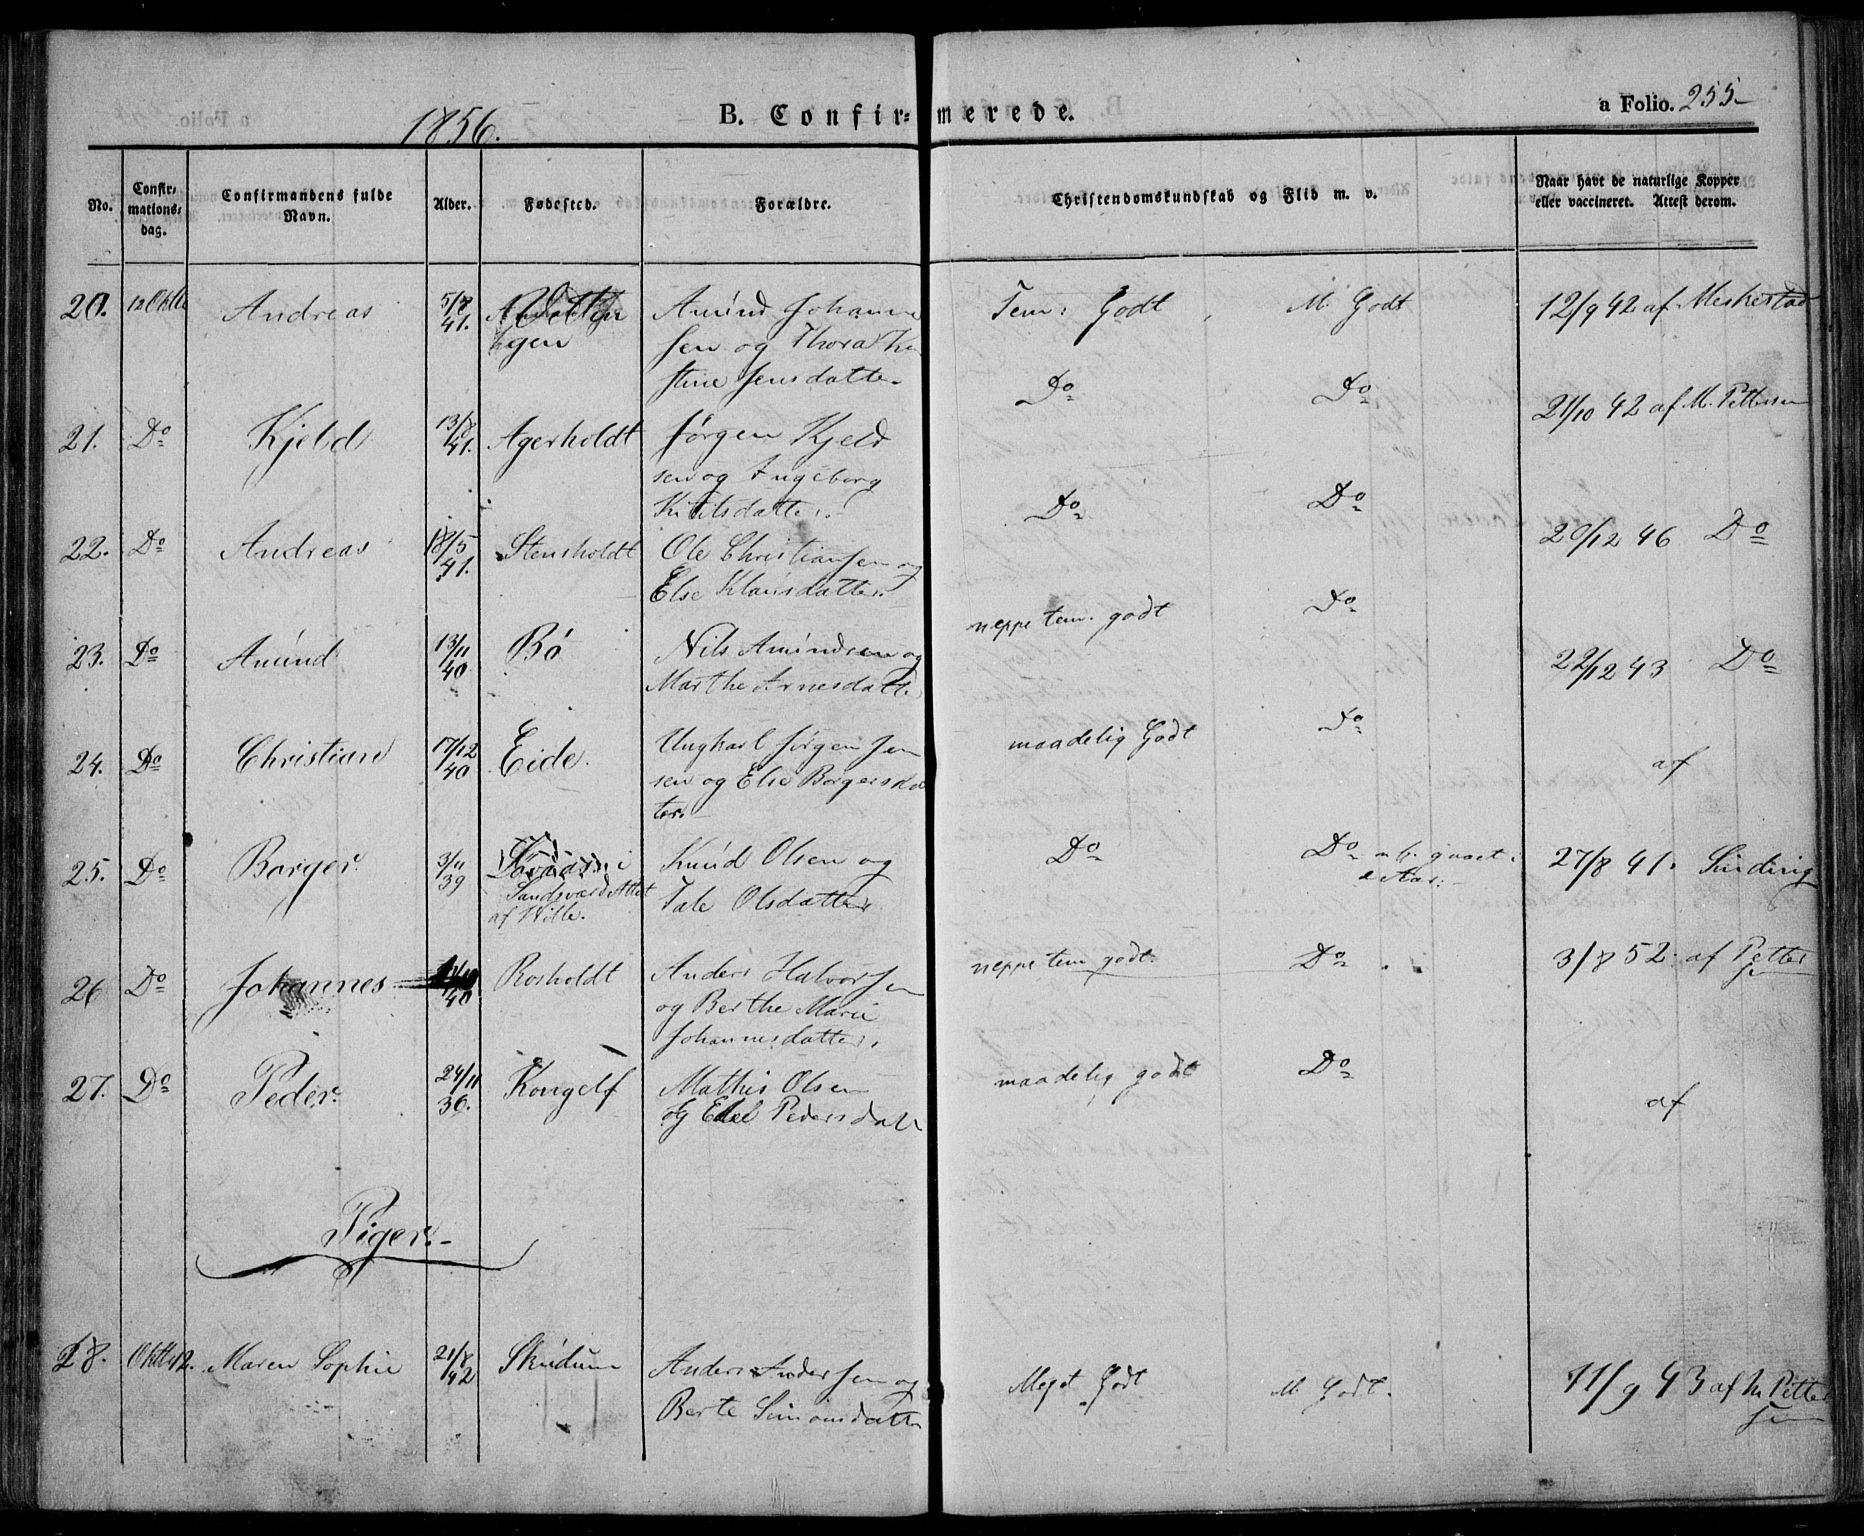 1856. B. Confirmerede. a Folio. 255-
No. Confirmationsdag. Confirmandens fulde Navn. Alder. Fødested. Forældre. Christendomskundskab og Flid m. v. Naar havt de naturlige Kopper eller vaccineret. Attest derom.
20. 12 Okt Andreas 5/8 41. Amund Johanne Tem: Godt M. Godt 12/9 42 af
gen sen og Thora
stine Jensdatter
21. Do Kjeld 13/8 41. Agerholdt Jørgen Kjeld Do Do 21/10 42 af M. Pettersen
sen og Ingeborg
Kittilsdatter.
22. Do Andreas 18/5 41. Stensholdt Ole Christiansen og Do Do 20/12 46 Do
Else Klausdatter.
23. Do Amund 13/11 40 Bø Nils Amundsen og neppe tem. godt Do 22/12 43 Do
Marthe Arnesdatt.
24. Do Christian 17/12 40 Eide. Jørgen sen maadelig Godt Do af
sen og Else Borgersda
ter.
25. Do Borger. 3/11 39 i Knud Olsen og Do Do 27/8 41. Sinding
Sandsværd Attet Tale Olsdatter
af Wille.
26 Do Johannes 40 Rosholdt Anders Halvorsen neppe tem godt. Do 3/8 52. af Petter
og Berthe Marie sen
Johannesdatter.
27. Do Peder. 24/11 36. Kongelf Mathis Olsen maadelig godt Do af
og Pedersdatt
Piger.-
28. Oktbr 12. Maren Sophie 21/8 42 Skudum Anders Andersen og Meget Godt M. Godt. 11/9 43 af M Petter
Berte Simonsdatter sen